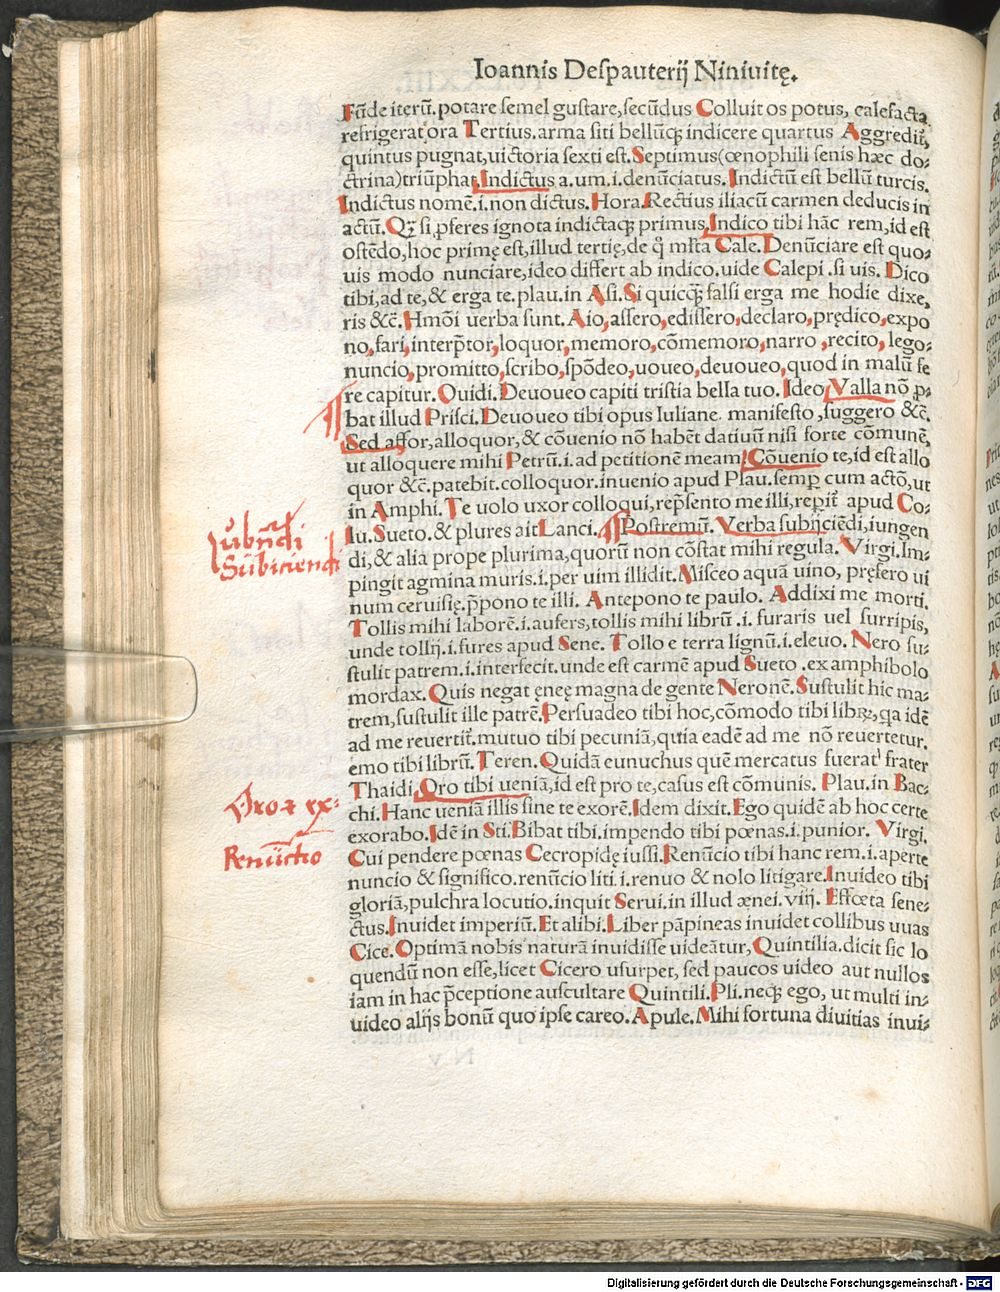 Ioannis Despauterij Niniuitę.
Fūde iterū. potare semel gustare, secūdus Colluit os potus, calefacta
refrigerat ora Tertius. arma siti bellūq; indicere quartus Aggredit̃,
quintus pugnat, uictoria sexti est. Septimus(œnophili senis hæc do⸗
ctrina)triūphat. Indictus a.um.i.denūciatus. Indictū est bellū turcis.
Indictus nomē.i.non dictus. Hora. Rectius iliacū carmen deducis in
actū. Qȝ si pferes ignota indictaq; primus. Indico tibi hāc rem, id est
ostēdo, hoc primę est, illud tertię, de q̃ mr̃a Cale. Denūciare est quo⸗
uis modo nunciare, ideo differt ab indico. uide Calepi. si uis. Dico
tibi, ad te, & erga te. plau. in Asi. Si quicq̃ falsi erga me hodie dixe,
ris &c̄. Hmōi uerba sunt. Aio, assero, edissero, declaro, prędico, expo
no, fari, interp̃tor, loquor, memoro, cōmemoro, narro, recito, lego⸗
nuncio, promitto, scribo, spōdeo, uoueo, deuoueo, quod in malū se
re capitur. Ouidi. Deuoueo capiti tristia bella tuo. Ideo Valla nō p̱⸗
bat illud Prisci. Deuoueo tibi opus Iuliane. manifesto, suggero &c̄.
Sed affor, alloquor, & cōuenio nō habēt datiuū nisi forte cōmunē,
ut alloquere mihi Petrū.i.ad petitionē meam. Cōuenio te, id est allo
quor &c̄. patebit. colloquor. inuenio apud Plau. semp̱ cum actō, ut
in Amphi. Te uolo uxor colloqui, rep̃sento me illi, repit̃ apud Co⸗
lu. Sueto. & plures ait Lanci. Postremū. Verba subijciēdi, iungen
di, & alia prope plurima, quorū non cōstat mihi regula. Virgi. Im⸗
pingit agmina muris.i.per uim illidit. Misceo aquā uino, pręfero ui
num ceruisię. p̃pono te illi. Antepono te paulo. Addixi me morti.
Tollis mihi laborē.i.aufers, tollis mihi librū.i.furaris uel surripis,
unde tollij.i.fures apud Sene. Tollo e terra lignū.i.eleuo. Nero su⸗
stulit patrem.i.interfecit. unde est carmē apud Sueto. ex amphibolo
mordax. Quis negat ęneę magna de gente Neronē. Sustulit hic ma⸗
trem, sustulit ille patrē. Persuadeo tibi hoc, cōmodo tibi librꝫ, qa idē
ad me reuertit̃. mutuo tibi pecuniā, quia eadē ad me nō reuertetur.
emo tibi librū. Teren. Quidā eunuchus quē mercatus fuerat frater
Thaidi. Oro tibi ueniā, id est pro te, casus est cōmunis. Plau. in Bac⸗
chi. Hanc ueniā illis sine te exorē. Idem dixit. Ego quidē ab hoc certe
exorabo. Idē in Sti. Bibat tibi. impendo tibi pœnas.i.punior. Virgi.
Cui pendere pœnas Cecropidę iussi. Renūcio tibi hanc rem.i.aperte
nuncio & significo. renūcio liti.i.renuo & nolo litigare. Inuideo tibi
gloriā, pulchra locutio. inquit Serui. in illud ænei. viij. Effœta sene⸗
ctus. Inuidet imperiū. Et alibi. Liber pāpineas inuidet collibus uuas
Cice. Optimā nobis naturā inuidisse uideātur, Quintilia. dicit sic lo
quendū non esse, licet Cicero usurpet, sed paucos uideo aut nullos
iam in hac p̃ceptione auscultare Quintili. Pli. neq; ego, ut multi in⸗
uideo alijs bonū quo ipse careo. Apule. Mihi fortuna diuitias inui⸗
Subiiciendi
Oro ex⸗
Renūctio
Digitalisierung gefördert durch die Deutsche Forschungsgemeinschaft - DFG